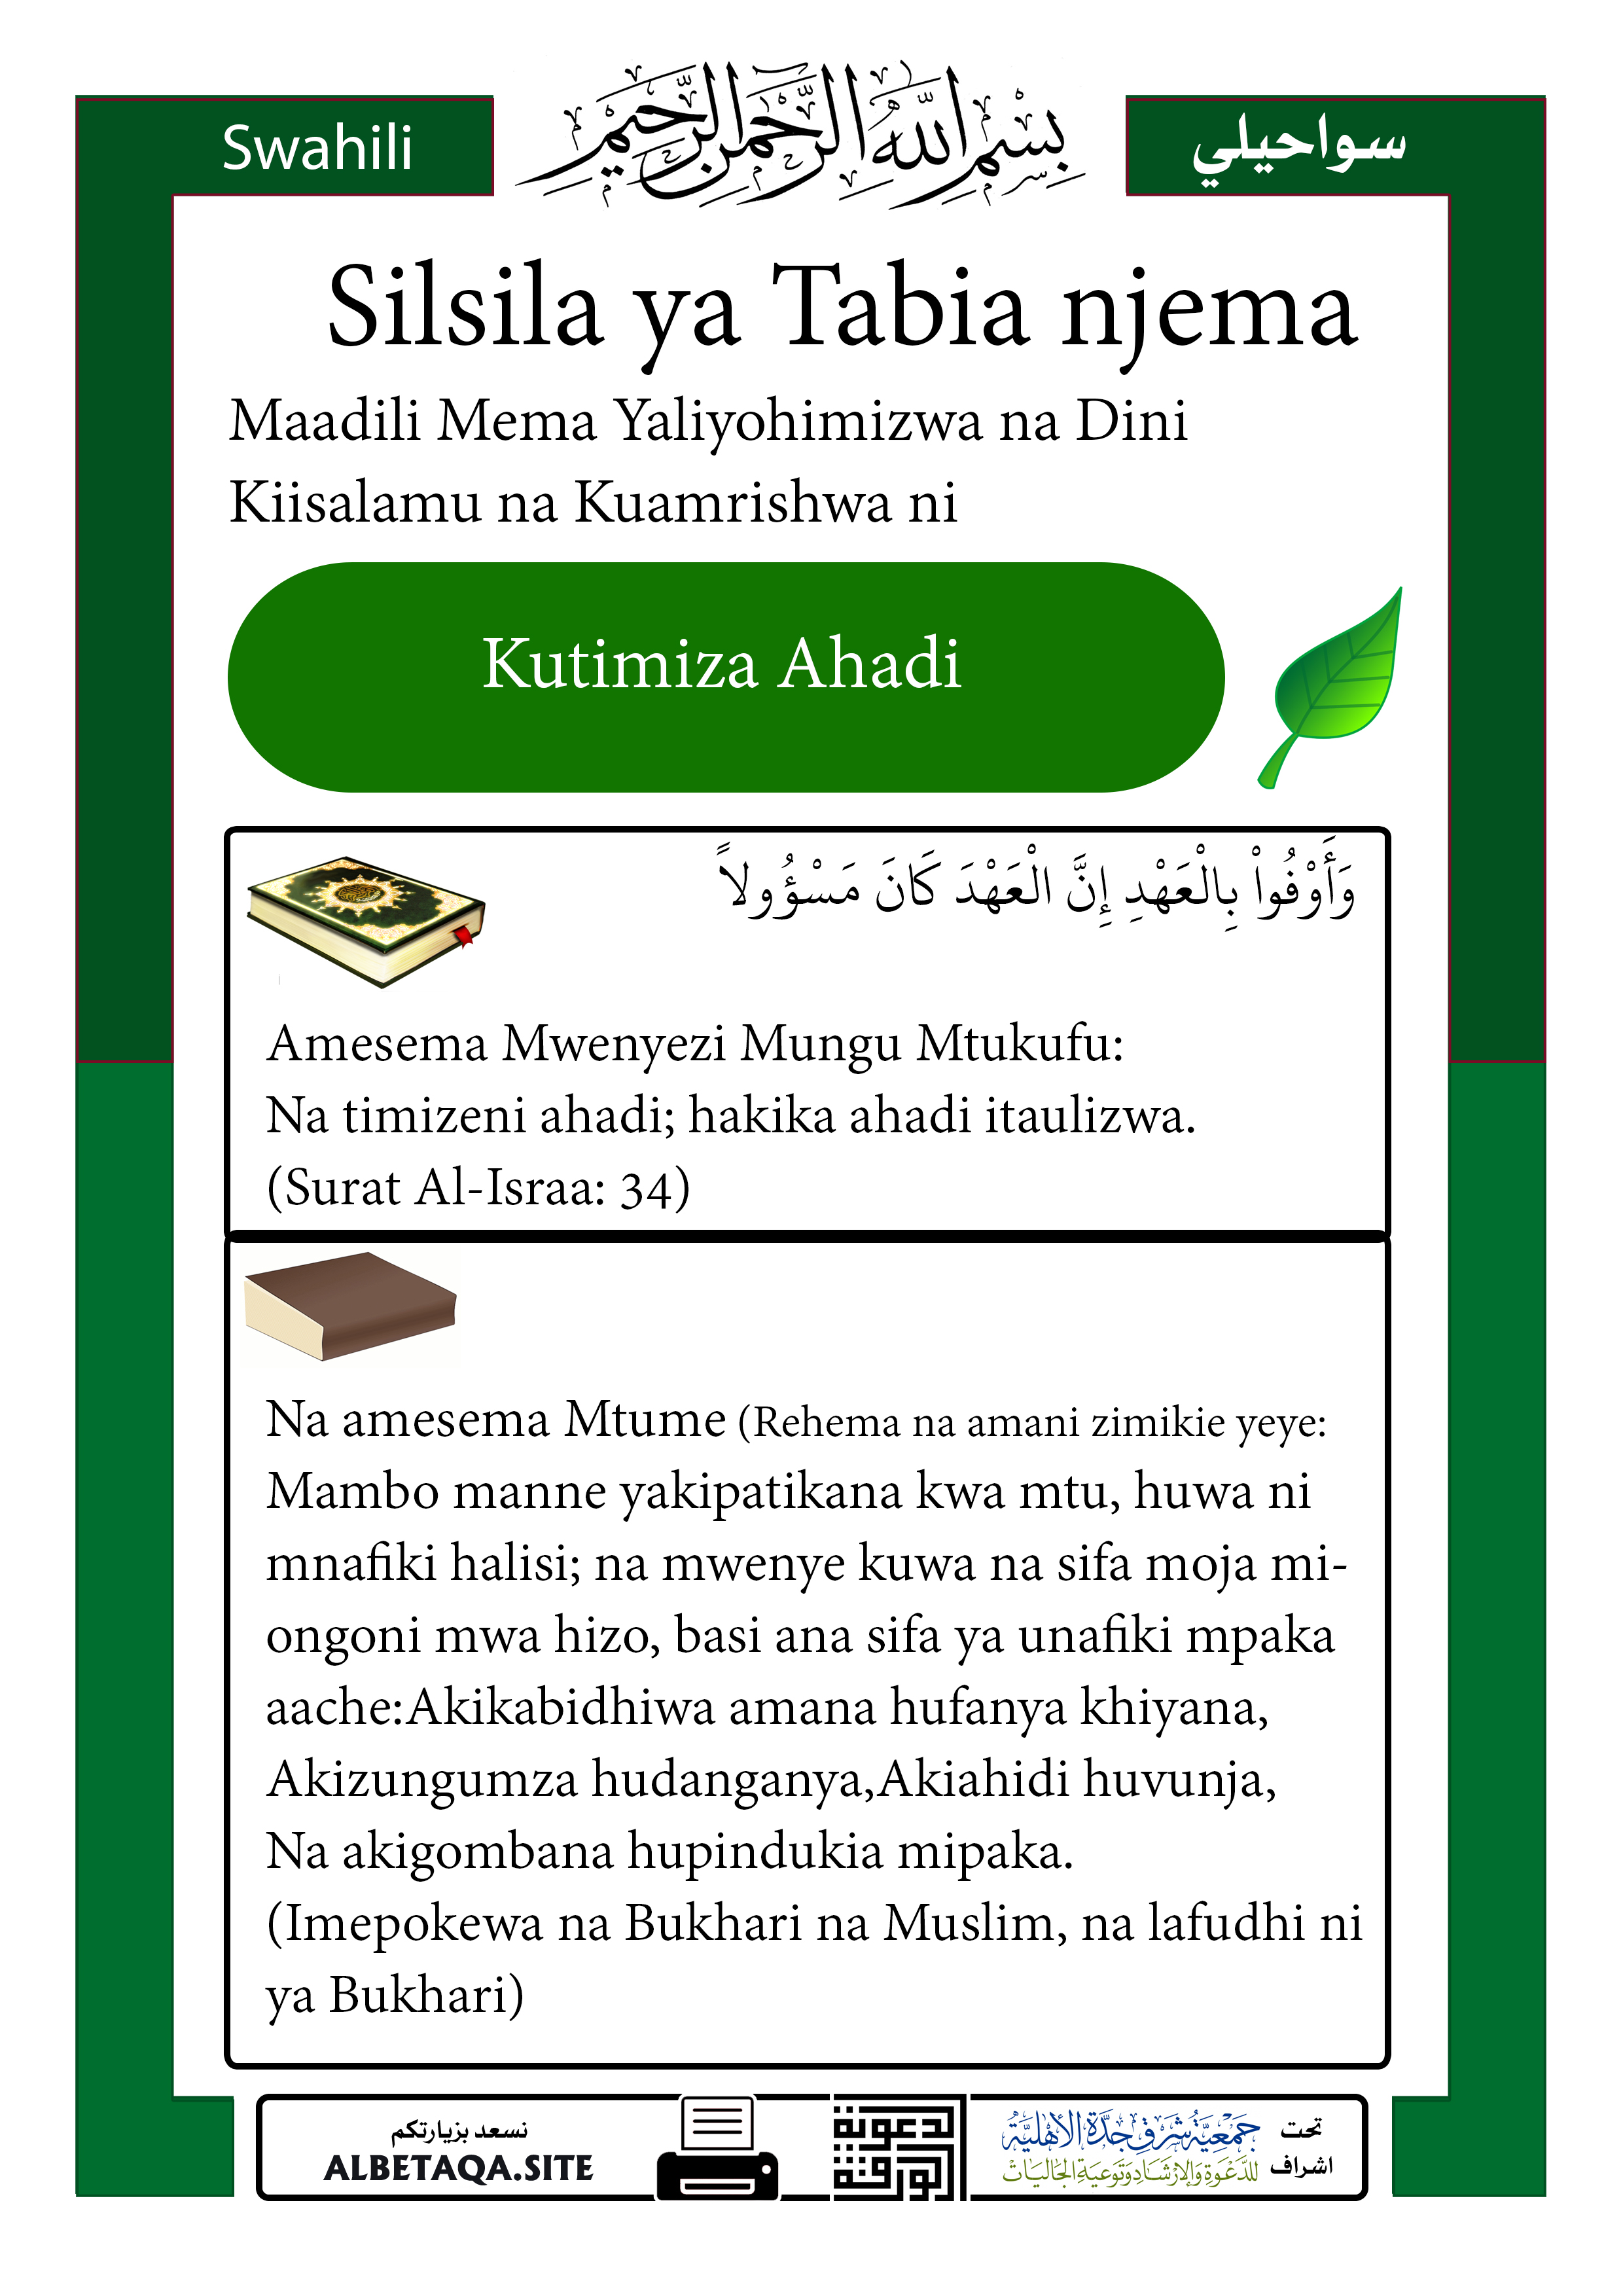 Swahili
بسم الله الرحمن الرحيم
سواحيلي
Silsila ya Tabia njema
Maadili Mema Yaliyohimizwa na Dini
Kiisalamu na Kuamrishwa ni
Kutimiza Ahadi
وَأَوْفُواْ بِالْعَهْدِ إِنَّ الْعَهْدَ كَانَ مَسْؤُولاً
Amesema Mwenyezi Mungu Mtukufu:
Na timizeni ahadi; hakika ahadi itaulizwa.
(Surat Al-Israa: 34)
Na amesema Mtume (Rehema na amani zimikie yeye:
Mambo manne yakipatikana kwa mtu, huwa ni
mnafiki halisi; na mwenye kuwa na sifa moja mi-
ongoni mwa hizo, basi ana sifa ya unafiki mpaka
aache:Akikabidhiwa amana hufanya khiyana,
Akizungumza hudanganya,Akiahidi huvunja,
Na akigombana hupindukia mipaka.
(Imepokewa na Bukhari na Muslim, na lafudhi ni
ya Bukhari)
نسعد بزيارتكم
ALBETAQA.SITE
الدعوية
الورقية
تحت
اشراف
جَمْعِيَّةُ شَرْقِ جَدَّةَ الأَهْلِيَّة
للدَّعْوَةِ وَالإِرْشَادِ وَتَوعِيَةِ الجَالِيَات